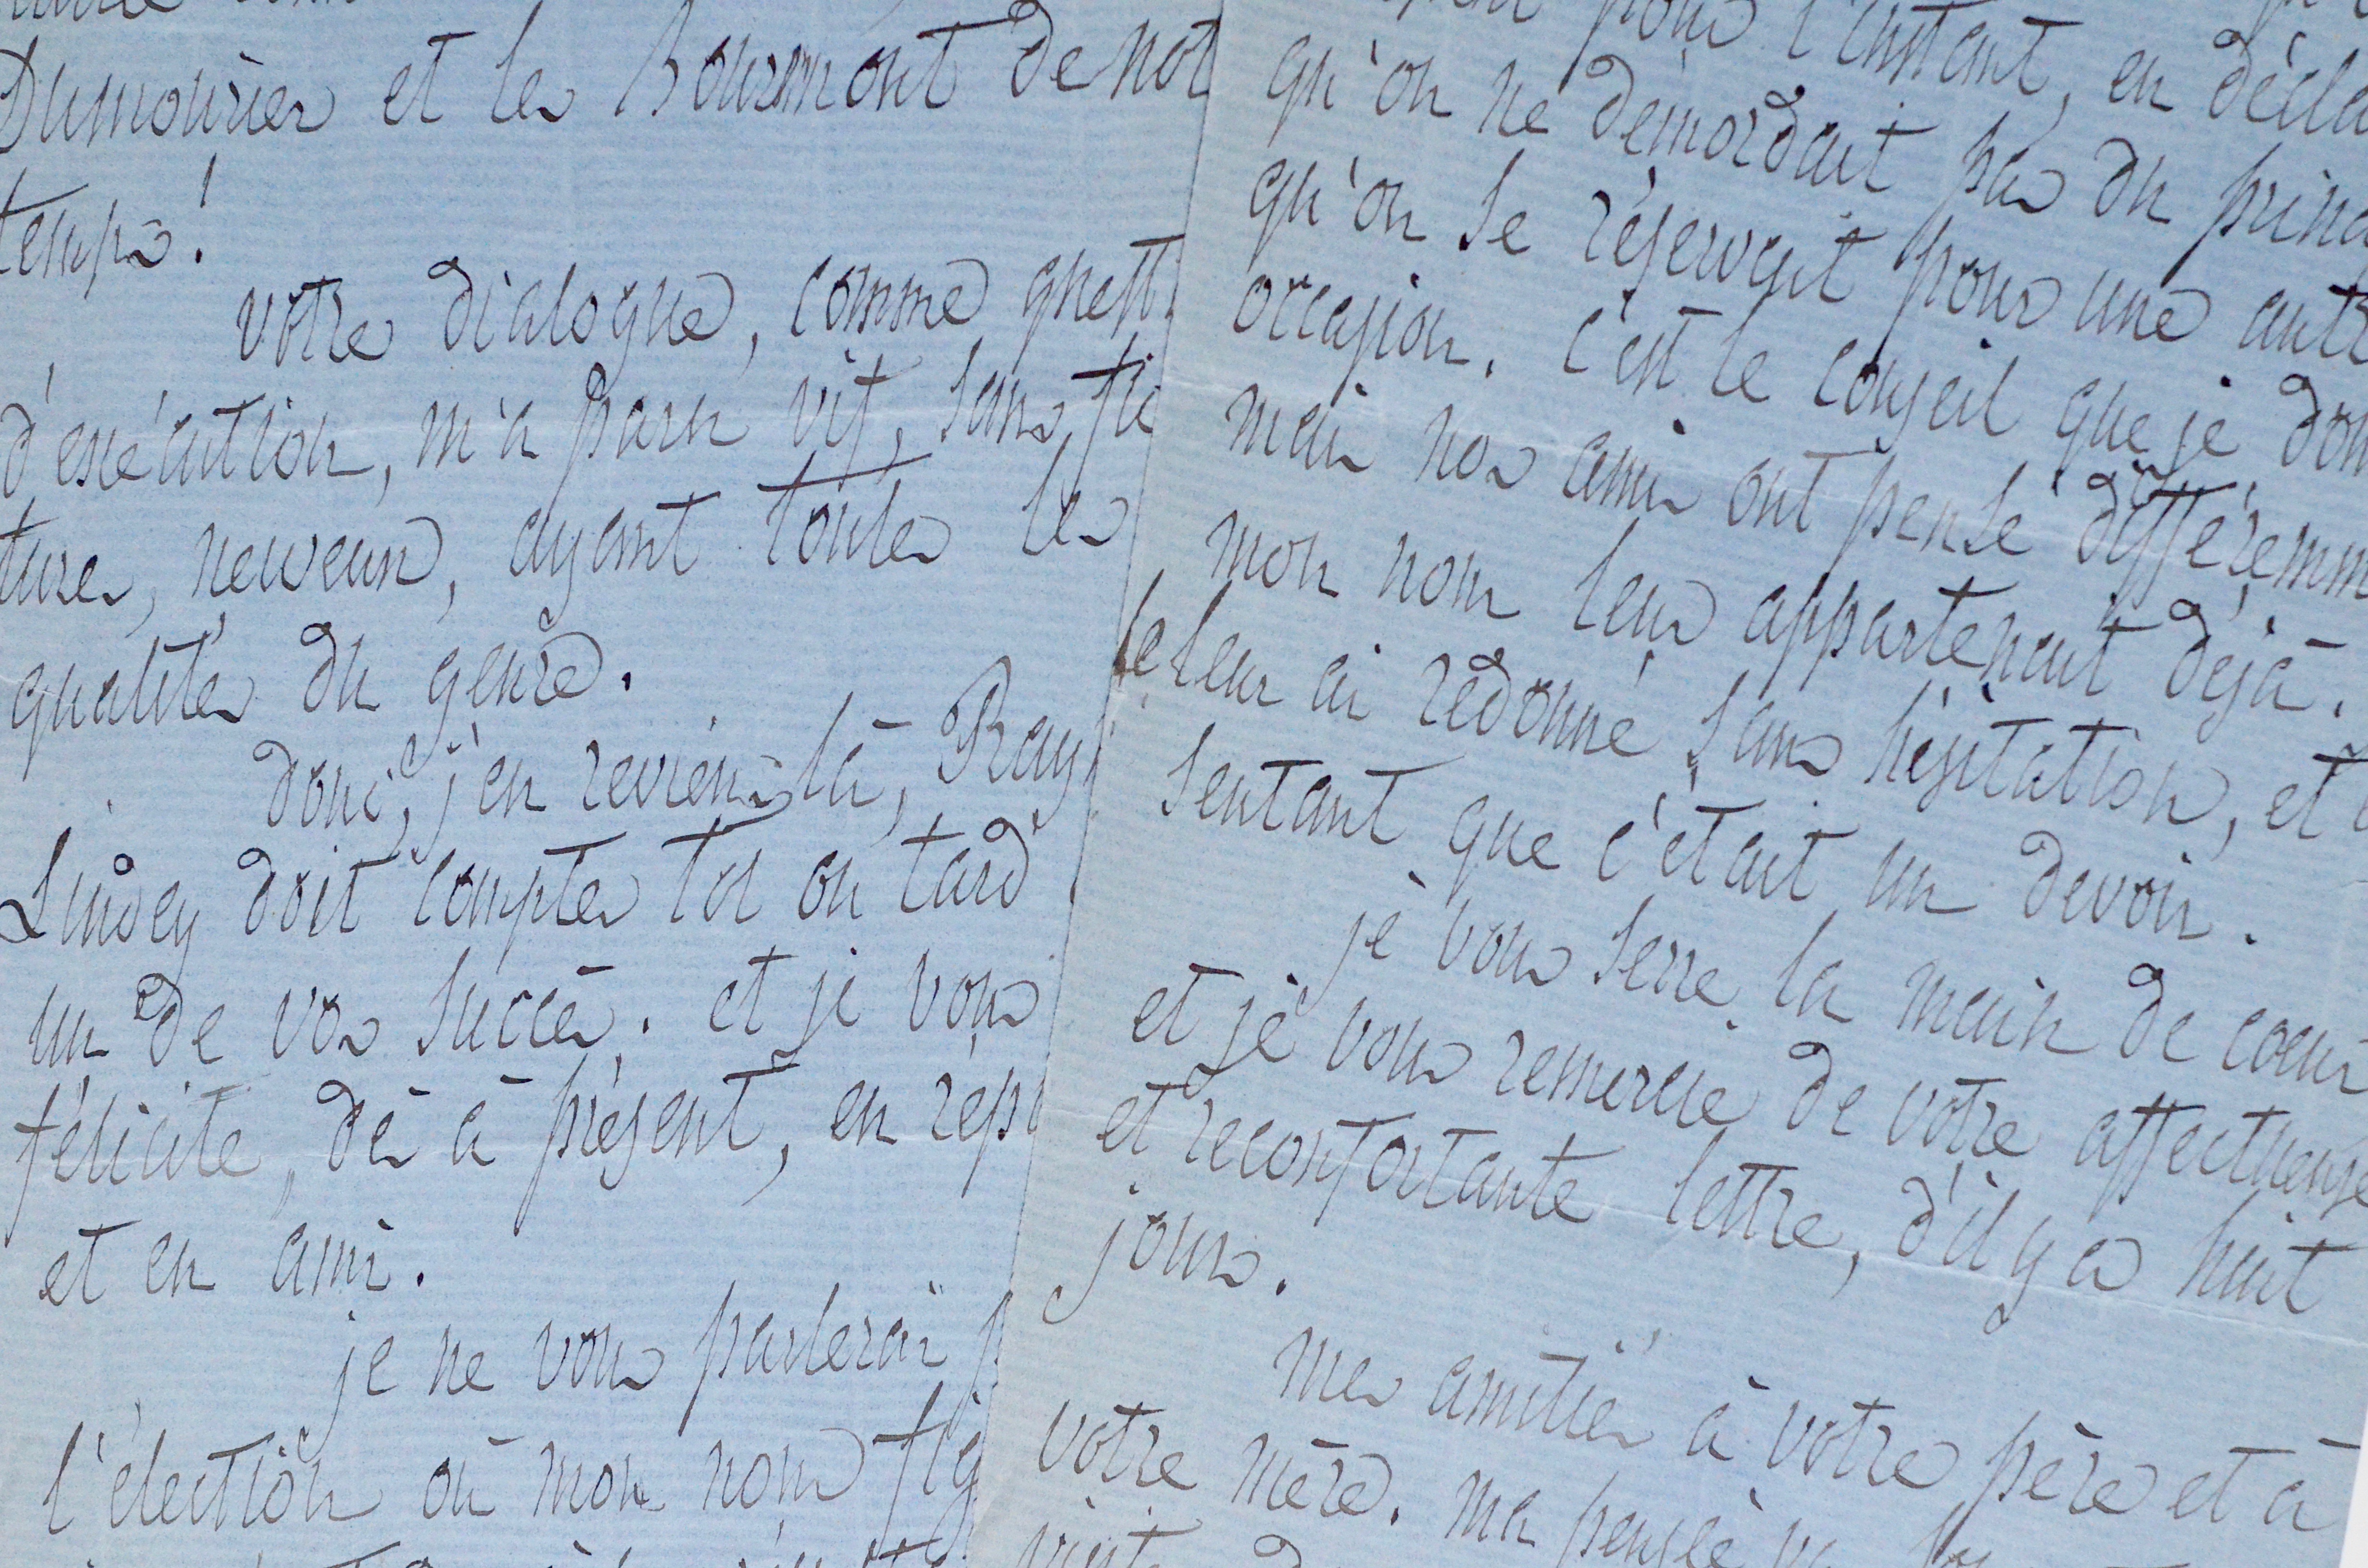 Dumouriez et les Bourmont de not
temps!
votre dialogue, comme quest
d'exécution, m'a paru vif, sans fio
tures, nerveux, ayant toutes les
qualités du genre.
donc, j'en reviens là, Ray
Lindey doit compter tôt ou tard
un de vos succès. et je vous
félicite, dès à présent, en rép
et en ami.
je ne vous parlerai p
l'élection où mon nom fig
pour l'instant, en décla
qu'on ne démordait pas du princ
qu'on se réservait pour une autr
occasion. c'est le conseil que je don
mais nos amis ont pensé différemm
mon nom leur appartenait déjà.
je leur ai redonné sans hésitation, et
sentant que c'était un devoir.
je vous serre la main de cœur
et je vous remercie de votre affectueuse
et reconfortante lettre, d'il y a huit
jours.
mes amitiés à votre père et à
votre mère. ma pensée va